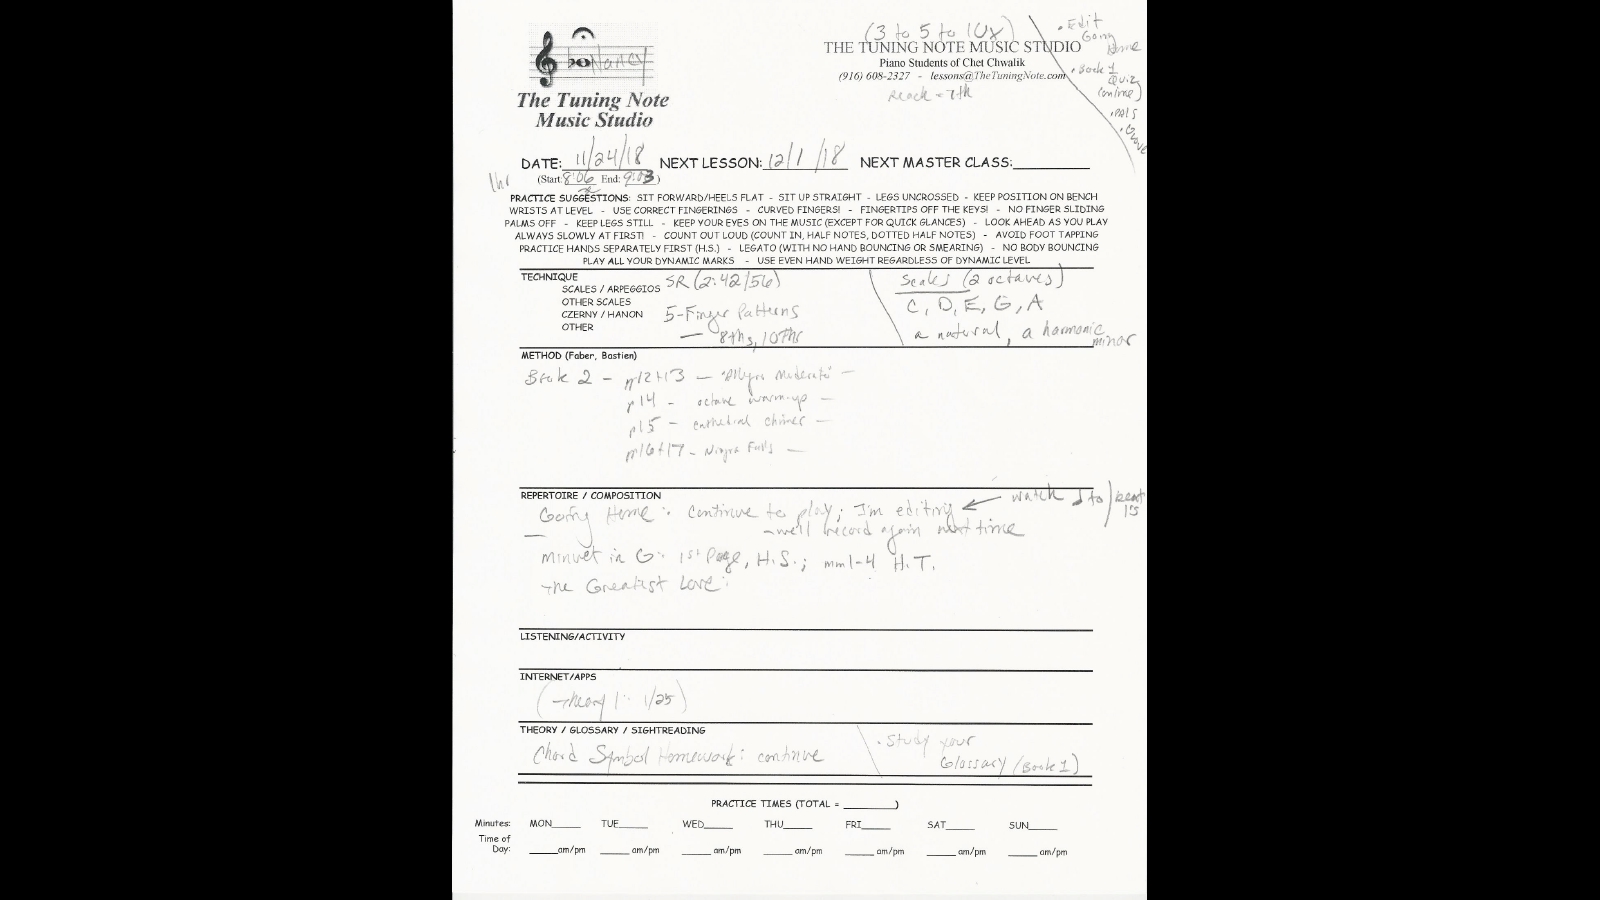 (3 to 5 to 10x)
• Edit
Going
Home
• Book 1
Quiz
(online)
Nancy
THE TUNING NOTE MUSIC STUDIO
Piano Students of Chet Chwalik
(916) 608-2327 - lessons@TheTuningNote.com
Reach = 7th
The Tuning Note
Music Studio
DATE: 11/24/18 NEXT LESSON: 12/1/18 NEXT MASTER CLASS:
1hr (Start: 8:06 End: 9:03)
PRACTICE SUGGESTIONS: SIT FORWARD/HEELS FLAT - SIT UP STRAIGHT - LEGS UNCROSSED - KEEP POSITION ON BENCH
WRISTS AT LEVEL - USE CORRECT FINGERINGS - CURVED FINGERS! - FINGERTIPS OFF THE KEYS! - NO FINGER SLIDING
PALMS OFF - KEEP LEGS STILL - KEEP YOUR EYES ON THE MUSIC (EXCEPT FOR QUICK GLANCES) - LOOK AHEAD AS YOU PLAY
ALWAYS SLOWLY AT FIRST! - COUNT OUT LOUD (COUNT IN, HALF NOTES, DOTTED HALF NOTES) - AVOID FOOT TAPPING
PRACTICE HANDS SEPARATELY FIRST (H.S.) - LEGATO (WITH NO HAND BOUNCING OR SMEARING) - NO BODY BOUNCING
PLAY ALL YOUR DYNAMIC MARKS - USE EVEN HAND WEIGHT REGARDLESS OF DYNAMIC LEVEL
TECHNIQUE
SCALES / ARPEGGIOS
OTHER SCALES
CZERNY / HANON
OTHER
SR (2:42/56)
5-Finger Patterns
— 8ths, 10ths
Scales (2 octaves)
C, D, E, G, A
a natural, a harmonic
minor
METHOD (Faber, Bastien)
Book 2 - p12+13 — "Allegro Moderato" —
p14 - octave warm-up —
p15 - cathedral chimes —
p16+17 - Niagra Falls —
REPERTOIRE / COMPOSITION
watch ♩ to / beat
1's
Going Home: continue to play; I'm editing
- we'll record again next time
minuet in G: 1st Page, H.S.; mm1-4 H.T.
The Greatest Love:
LISTENING/ACTIVITY
INTERNET/APPS
(Theory 1: 1/25)
THEORY / GLOSSARY / SIGHTREADING
Chord Symbol Homework: continue
• Study your
Glossary (Book 1)
PRACTICE TIMES (TOTAL = )
Minutes: MON TUE WED THU FRI SAT SUN
Time of
Day: am/pm am/pm am/pm am/pm am/pm am/pm am/pm